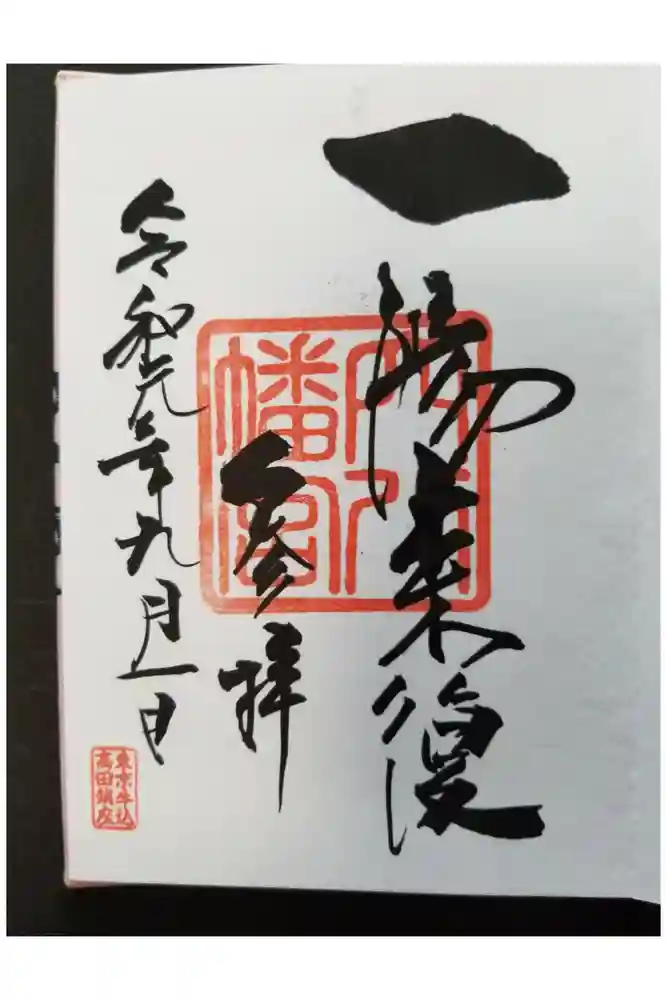 一陽来復
穴八
幡宮
参拝
令和元年九月一日
東京牛込
高田鎮座